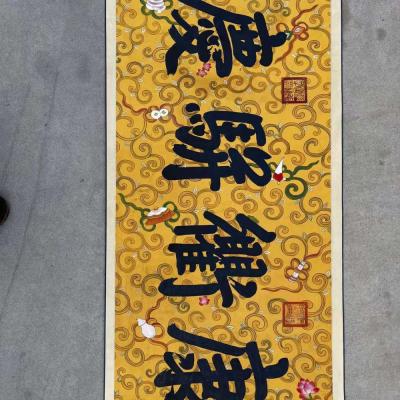 慶駢衢康